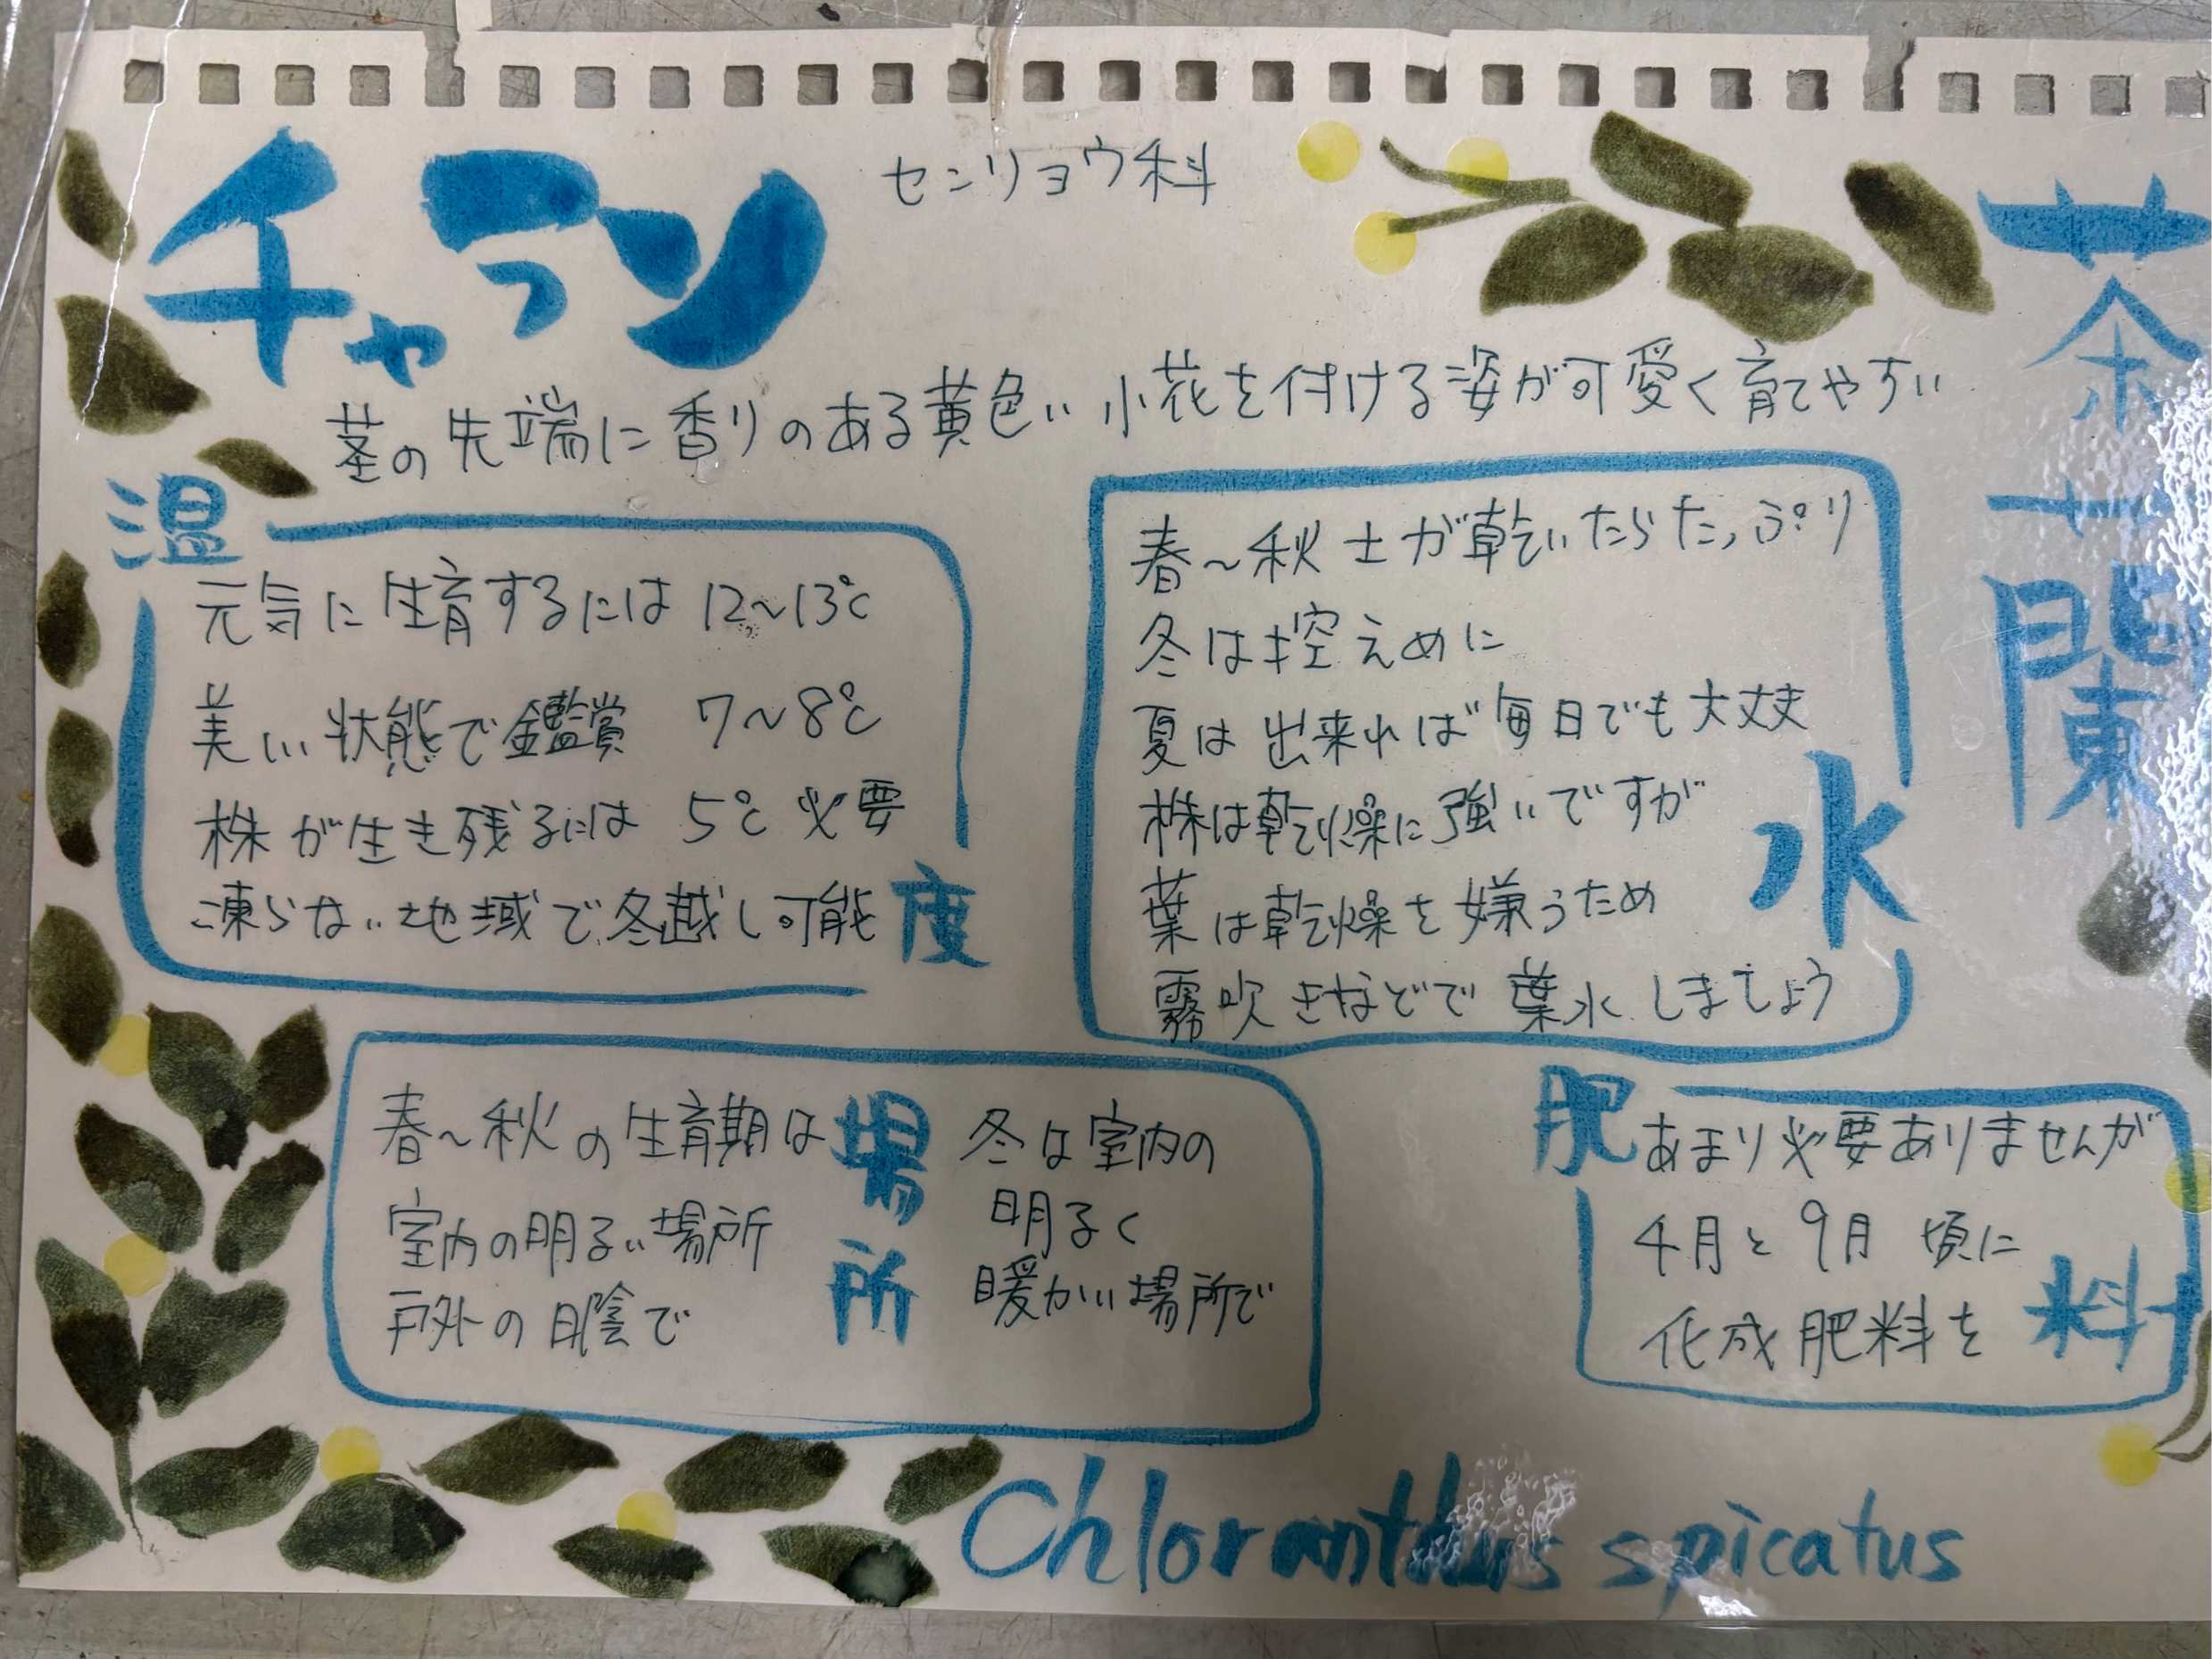 チャラン
センリョウ科
茶蘭
茎の先端に香りのある黄色い小花を付ける姿が可愛く育てやすい
温度
元気に生育するには 12～13℃
美しい状態で鑑賞 7～8℃
株が生き残るには 5℃ 必要
凍らない地域で冬越し可能
水
春～秋 土が乾いたらたっぷり
冬は控えめに
夏は出来れば毎日でも大丈夫
株は乾燥に強いですが
葉は乾燥を嫌うため
霧吹きなどで葉水しましょう
場所
春～秋の生育期は
室内の明るい場所
戸外の日陰で
冬は室内の
明るく
暖かい場所で
肥料
あまり必要ありませんが
4月と9月頃に
化成肥料を
Chloranthus spicatus